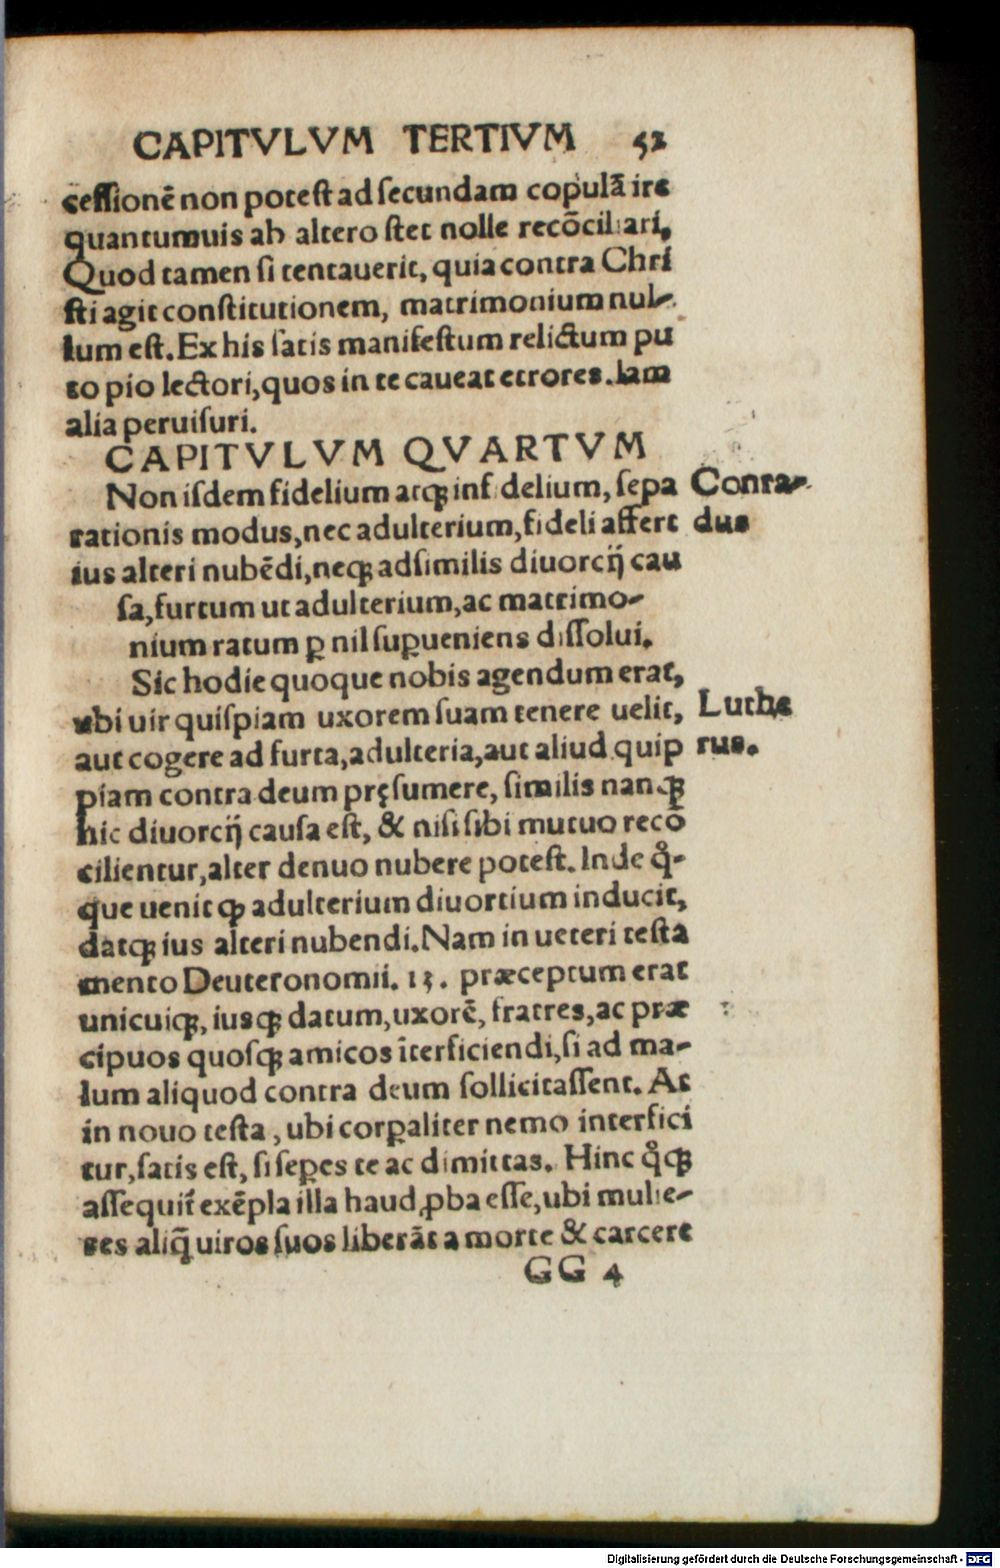 CAPITVLVM TERTIVM 52
ceſſionē non poteſt ad ſecundam copulā ire
quantumuis ab altero ſtet nolle recōciliari,
Quod tamen ſi tentauerit, quia contra Chri
ſti agit conſtitutionem, matrimonium nul-
lum eſt. Ex his ſatis manifeſtum relictum pu
to pio lectori, quos in te caueat errores. Iam
alia peruiſuri.
CAPITVLVM QVARTVM
Non iſdem fidelium atqꝫ infidelium, ſepa
rationis modus, nec adulterium, fideli affert
ius alteri nubēdi, neqꝫ adſimilis diuorcij cau
ſa, furtum ut adulterium, ac matrimo-
nium ratum ꝑ nil ſuꝑueniens diſſolui.
Contra-
dus
Sic hodie quoque nobis agendum erat,
ubi uir quiſpiam uxorem ſuam tenere uelit,
aut cogere ad furta, adulteria, aut aliud quip
piam contra deum pręſumere, ſimilis nanqꝫ
hic diuorcij cauſa eſt, & niſi ſibi mutuo reco
cilientur, alter denuo nubere poteſt. Inde qͦ-
que uenit ꝙ adulterium diuortium inducit,
datqꝫ ius alteri nubendi. Nam in ueteri teſta
mento Deuteronomii. 13. præceptum erat
unicuiqꝫ, iusqꝫ datum, uxorē, fratres, ac præ
cipuos quoſqꝫ amicos īterficiendi, ſi ad ma-
lum aliquod contra deum ſollicitaſſent. At
in nouo teſta, ubi corꝑaliter nemo interfici
tur, ſatis eſt, ſi ſeꝑes te ac dimittas. Hinc qͦqꝫ
aſſequit᷑ exēpla illa haud ꝓba eſſe, ubi mulie-
res aliq̄ uiros ſuos liberāt a morte & carcere
Luthe
rus.
GG 4
Digitalisierung gefördert durch die Deutsche Forschungsgemeinschaft - DFG